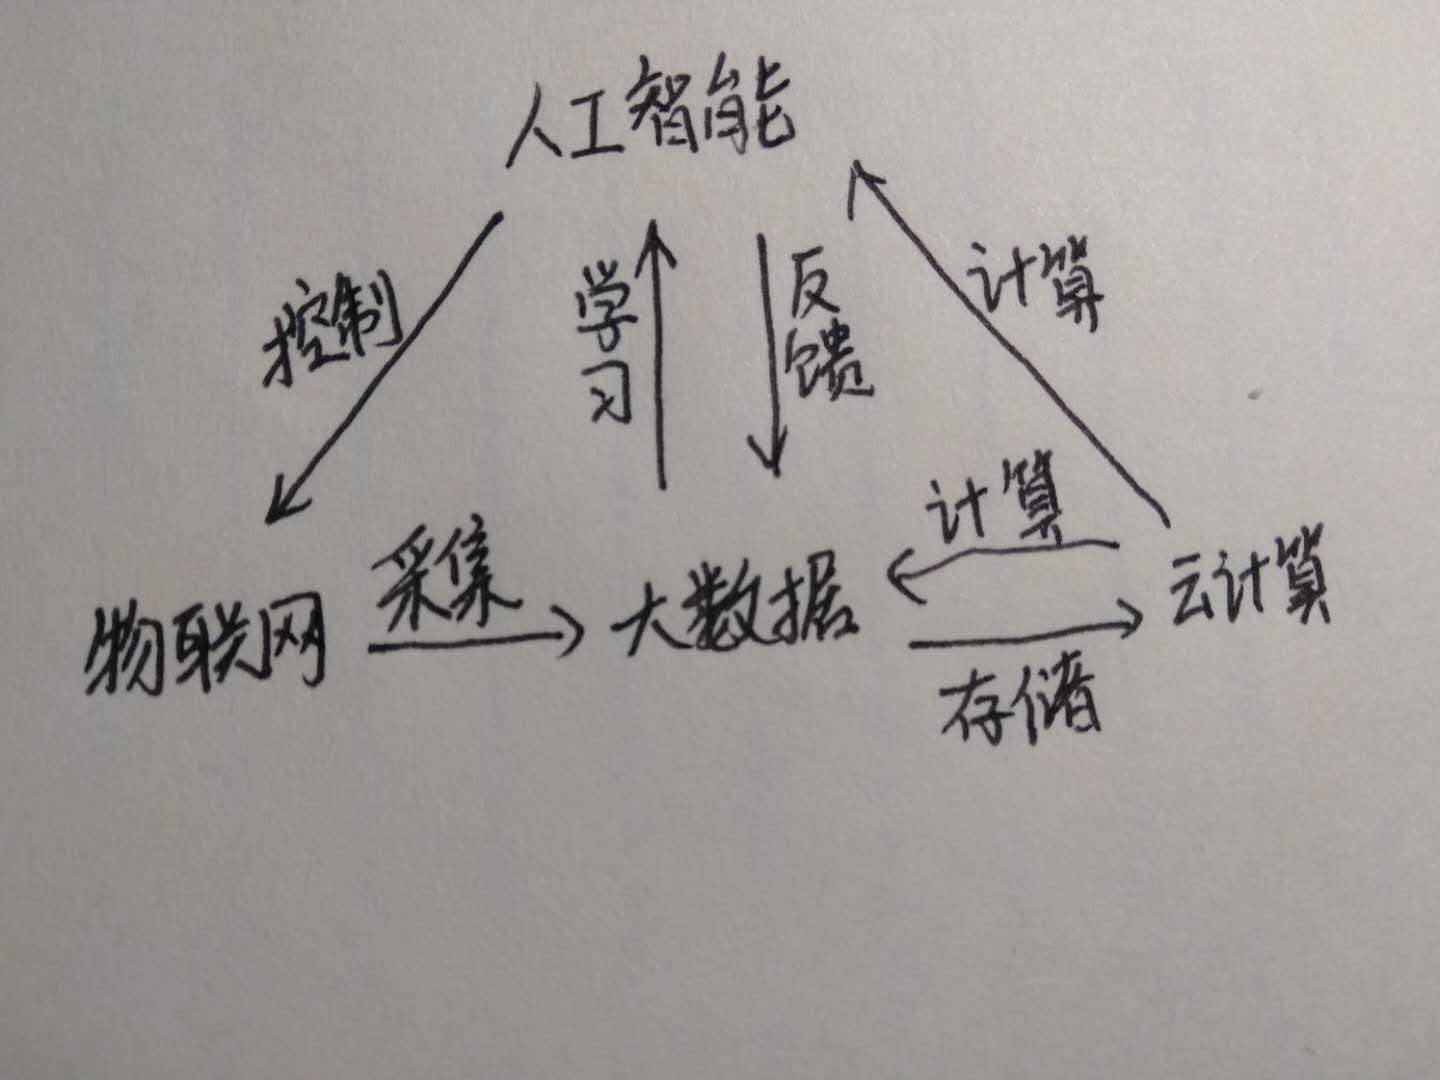 人工智能
控制
学习
反馈
计算
计算
物联网
采集
大数据
云计算
存储